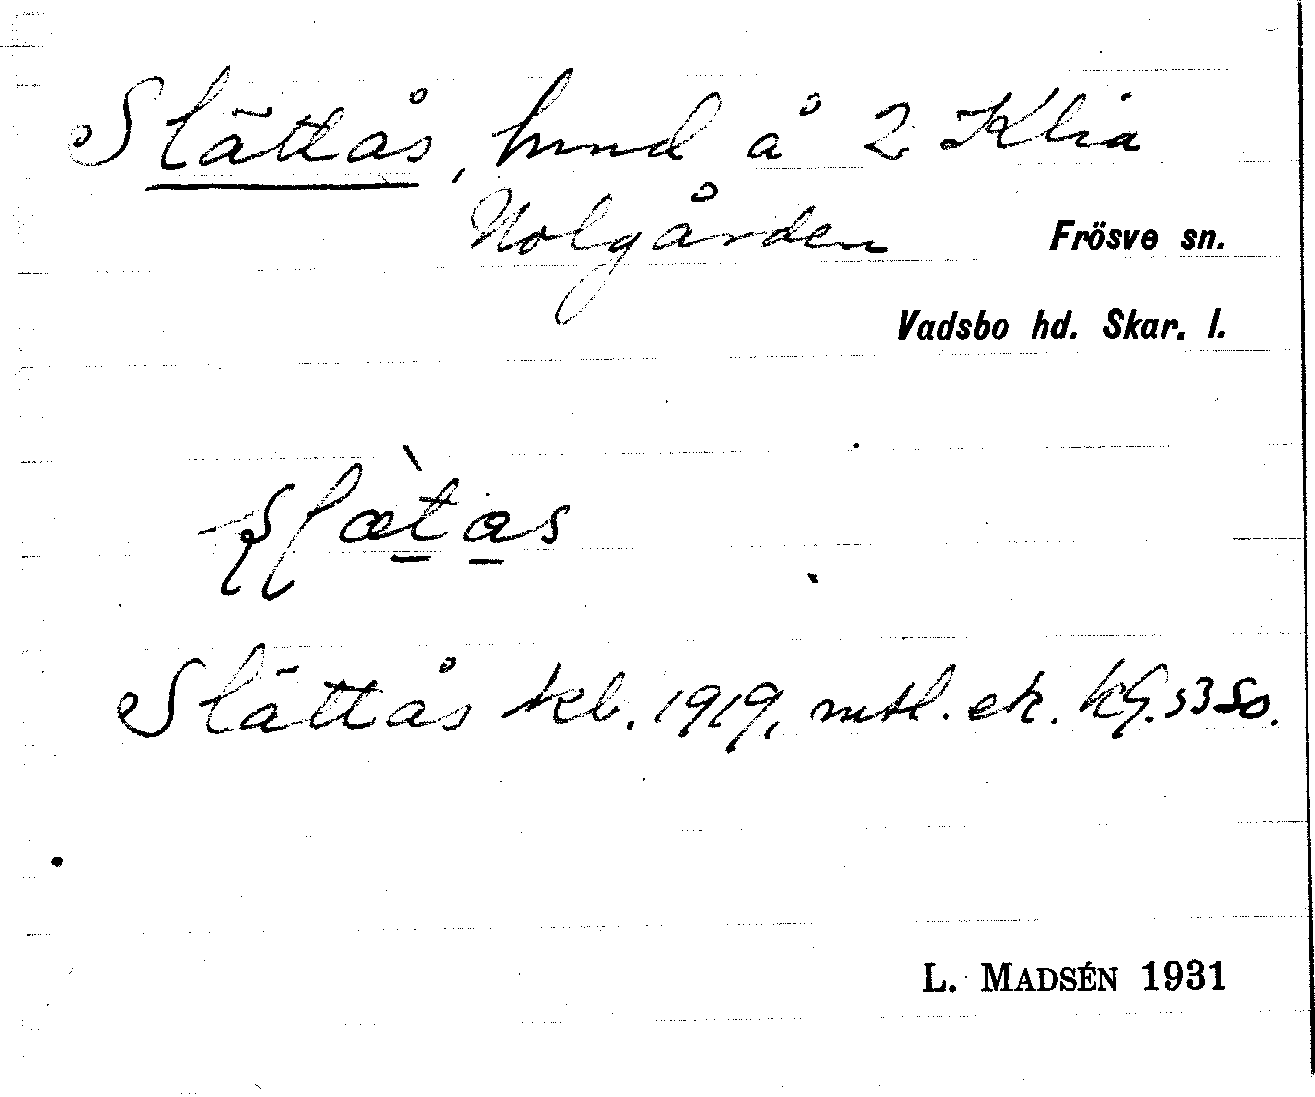 Slättås, hmnd å 2 Klia
Nolgården Frösve sn.
Vadsbo hd. Skar. l.
Slättås kb. 1919, mtl. ek. kG. 33 So.
L. MADSÉN 1931